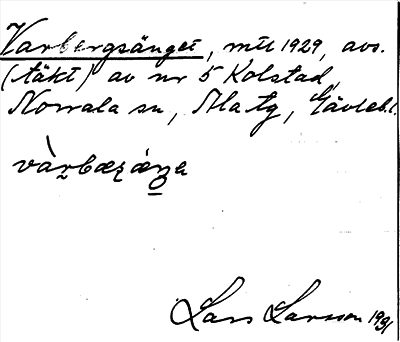 Varbergsänget, mtl 1929, avs.
(täkt) av nr 5 Kolstad,
Norrala sn, Ala tg, Gävleb.l.
vàrbæʀ́æŋa
Lars Larsson 1931